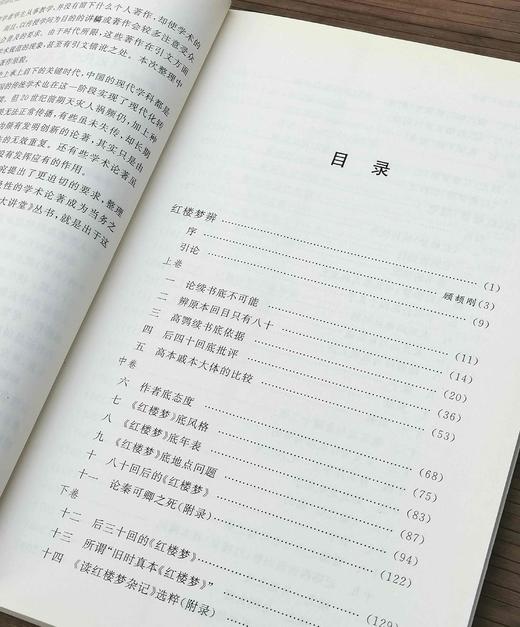 学者毕生从事教学,并没有留下什么个人著作,却使学术的
而且,以传授学问为目的的讲稿或著作会较多注意受众
会普及的要求。由于时代所限,这些著作在引文方面
术规范的现象,甚至有引文错讹之处。本次整理中
著作原貌。
史上承上启下的关键时代,中国的现代学科都是
国的传统学术也在这一阶段实现了现代化转
度。但20世纪前期天灾人祸频仍,加上种
无法正常传播,有些虽未失传,却长期
为颇有发明创新的论著,其实只是出
的无效重复。还有些学术论著虽
没有发挥应有的作用。
究提出了更迫切的要求,整理
性的学术论著成为当务之
大讲堂》丛书,就是出于这
目 录
红楼梦辨 (1)
序 顾颉刚(3)
引论 (9)
上卷
一 论续书底不可能 (11)
二 辨原本回目只有八十 (14)
三 高鹗续书底依据 (20)
四 后四十回底批评 (36)
五 高本戚本大体的比较 (53)
中卷
六 作者底态度 (68)
七 《红楼梦》底风格 (75)
八 《红楼梦》底年表 (83)
九 《红楼梦》底地点问题 (87)
十 八十回后的《红楼梦》 (94)
十一 论秦可卿之死(附录) (122)
下卷
十二 后三十回的《红楼梦》 (129)
十三 所谓“旧时真本《红楼梦》”
十四 《读红楼梦杂记》选粹(附录)